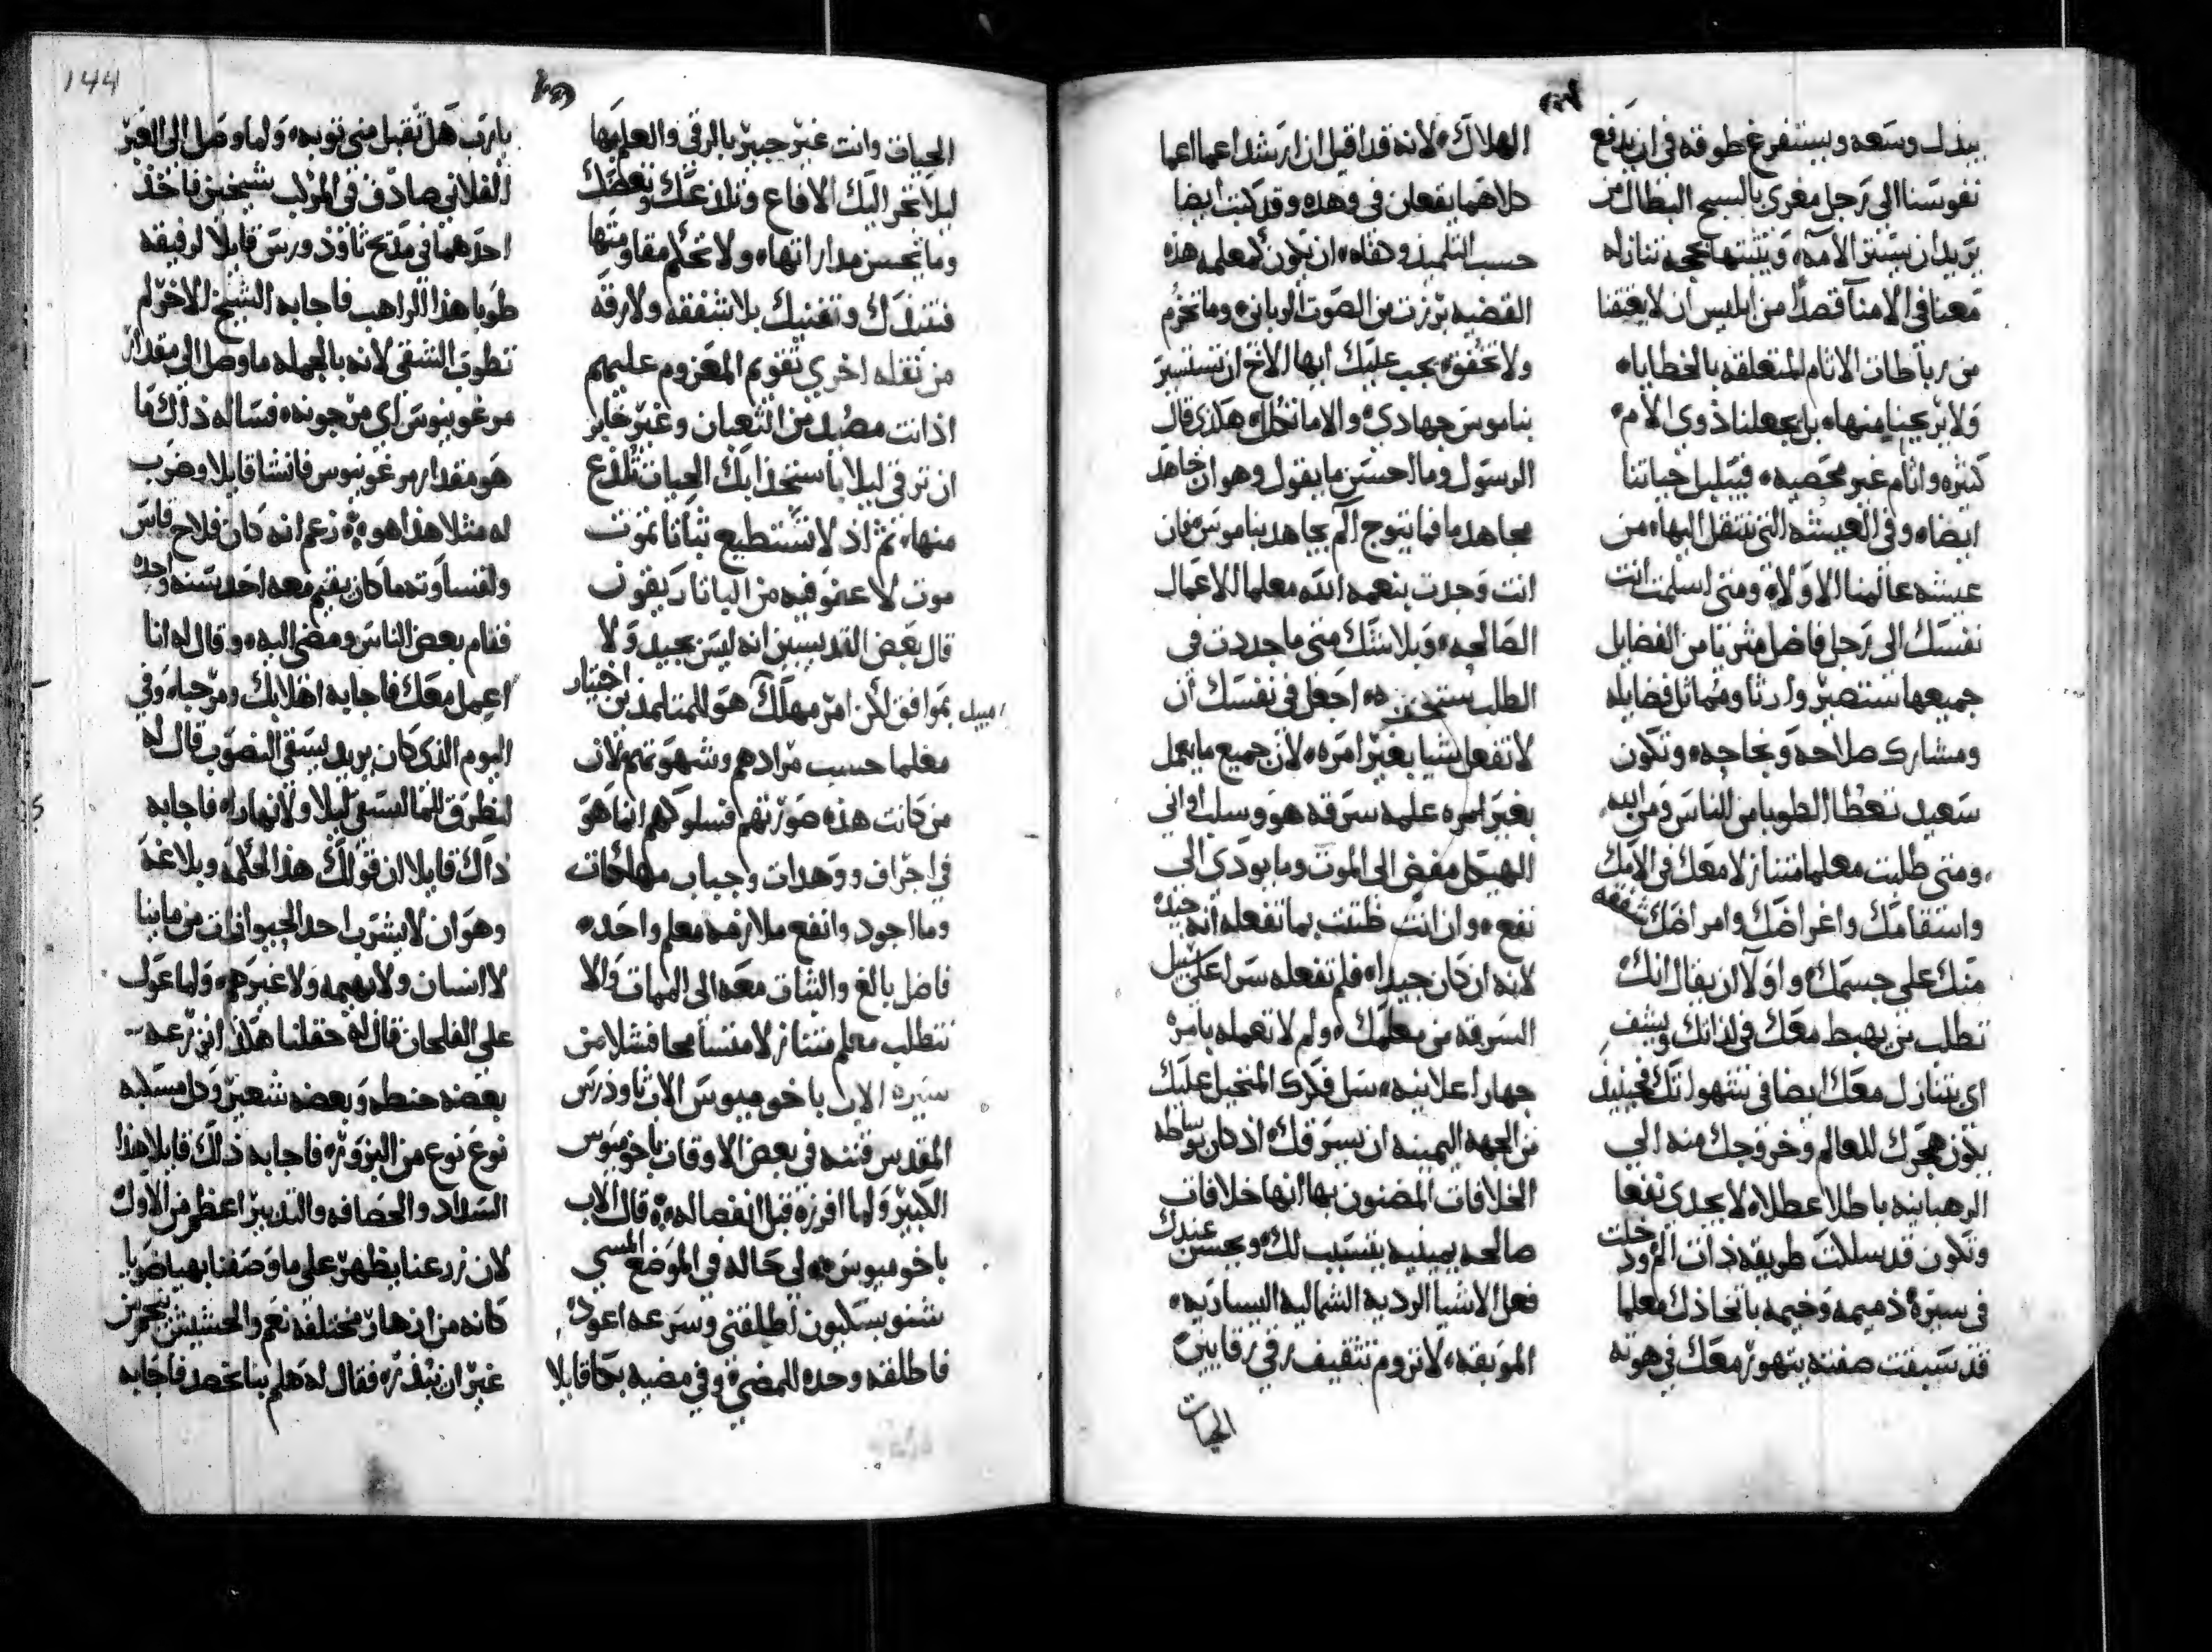 يبذل وسعه ويستفرغ طوقه في ان يدفع
نفوسنا الي رجل مغري بالسبح البطال من
يريد ان يستتر الامه، ويثبتها بحجه تنازله
معنا في الامنا قصدًا من ابليس ان لا يعتقنا
من رباطات الاثام المتعلقه بالخطايا،
ولا يريحنا منها، بل يجعلنا ذوي الام
كثره واثام غير محصيه، فيبلبل حياتنا
ايضا، وفي العيشه التي ننتقل اليها، من
عيشة عالمنا الاوله، ومتي اسلمت انت
نفسك الي رجل فاضل مثريًا من الفضايل
جميعها ستصير وارثا ومماثل فضايله
ومشارك صلاحه ونجاحه، وتكون
سعيد تعطا الطوبا من الناس ومن ابيه
ومتي طلبت معلما متنازلا معك في الامك
واسقامك واغراضك وامراضك شفقه
منك علي جسمك، واولا ان يقال انك
تطلب من يهبط معك في لذاتك ويشف
اي يتنازل معك ايضا في شهواتك فحينيذ
يكون هجرك للعالم وخروجك منه الي
الرهبانيه باطلا عطلا، لا يجدي نفعا
وتكون قد سلكت طريقه ذات الم ودخلت
في سيرة ذميمه وخيمه باتخاذك معلما
قد سبقت صفته يتهور معك في هوته
الهلاك، لانه قد اقيل ان ارشد اعما اعما
كلاهما يقعان في وهده وقد كتب ايضا
حسب التلميذ وكفاه، ان يكون كمعلمه هذه
القضيه برزت من الصوت الرباني، وما تخرم
ولا تخفق، يجب عليك ايها الاخ ان تستسير
بناموس جهادي، والا ما تكلل هكذي قال
الرسول وما احسن ما يقول وهو ان جاهد
مجاهد ما فما يتوج الم يجاهد بناموس فان
انت وجدت بنعمه الله معلما للاعمال
الصالحه، وبلا شك متي ما جددت في
الطلب ستجده، اجعل في نفسك ان
لا تفعل شيا بغير امره، لان جميع ما يعمل
بغير امره علمه سرقه هو وسلب اواني
الهيكل مفض الي الموت وما يودي الي
نفع، وان انت ظننت بما تفعله انه جيده
لانه ان كان جيدا، فلم تفعله سرا علي سبيل
السرقه من معلمك، ولم لا تعمله بامره
جهارا علانيه، سل فكرك المتخيل عليك
من الجهه اليمينه ان يسرقك، اذ كان بوساطه
الخلافات المضنون بها انها خلافات
صالحه يمينيه يتسبب لك، ويحسن عندك
فعل الاشيا الرديه الشماليه اليساريه،
الموبقه، لا تروم تثقيف رقي رقايين
الحيات
الحيات وانت غير خبير بالرقي والعلم بها
ليلا تنجر اليك الافاع وتلذعك وتعظك
وما تحسن مداراتها، ولا تحكم مقاومتها
فتبيدك وتفنيك بلا شفقه ولا رقه
من نقله اخري تقويم المعزوم عليهم
اذ انت مصيد من الثعبان وغير خاير
ان ترقي ليلا باستخذابك الحيات تلدع
منها، ثم اذ لا تستطيع ثباتا تموت
موت لا عفو فيه من الباثار يقون
قال بعض القديسين انه ليس بجيد ولا
بموافق لكن امر مهلك هو للمتلمذين اختيار
معلما حسب مرادهم وشهوتهم لان
من كانت هذه صورتهم فسلوكهم انما هو
في اجراف ووهدات وجباب مهلكات
وما اجود وانفع ملازمه معلم واحد،
فاضل بالغ والثبات معه الي الممات والا
تتطلب معلم متنازلا متسامحا فشلا من
سيره الاب باخوميوس الاب ثاوذرس
المقدس فتنه في بعض الاوقات باخوميوس
الكبير ولما افرزه قبل انفصاله، قال الاب
باخوميوس، لي حاله في الموضع المسمي
شنوبسكيون اطلقني وسرعه اعود،
فاطلقه وحده للمضي، وفي مضيه بكا قايلا
يا رب هل تقبل مني توبه، ولما وصل الي العبر
الفلاني صادف في المركب شيخين فاخذ
احدهما في مديح ثاوذورس قايلا لرفيقه
طوبا هذا الراهب فاجابه الشيخ الاخر لم
تطوب الشقي لانه بالجمله ما وصل الي مقدار
مرغونيوس اي مرجونه، فساله ذاك ما
هو مقدار مرغونيوس فانشا قايلا وضرب
له مثلا هذا هو، زعم انه كان فلاح قاس
ولقساوته ما كان يقيم معه احد سنه واحده
فقام بعض الناس ومضي اليه، وقال له انا
اعمل معك فاجابه اهلا بك ومرحبا، وفي
اليوم الذي كان يريد يسقي النصوب قال له
لنطرق للما لنسقي ليلا ولا نهارا، فاجابه
ذاك قايلا ان قولك هذا لحكمه وبلاغه
وهو ان لا يشرب احد الحيوانات من ماينا
لا انسان ولا بهيمه ولا غيرهم، ولما عول
علي الفلحان قال له حقلنا هكذا ازرعه
بعضه حنطه وبعضه شعير وكل مسكبه
نوع نوع من البزوره، فاجابه ذلك قايلا هذا
السداد والحصافه والتدبير اعظم من الاول
لان زرعنا يظهر علي ما وصفنا بهيا ضويا
كانه من ازهار مختلفه نعم والحشيش يتحرز من
غير ان يبذره، فقال له هلم بنا نحصد فاجابه
144